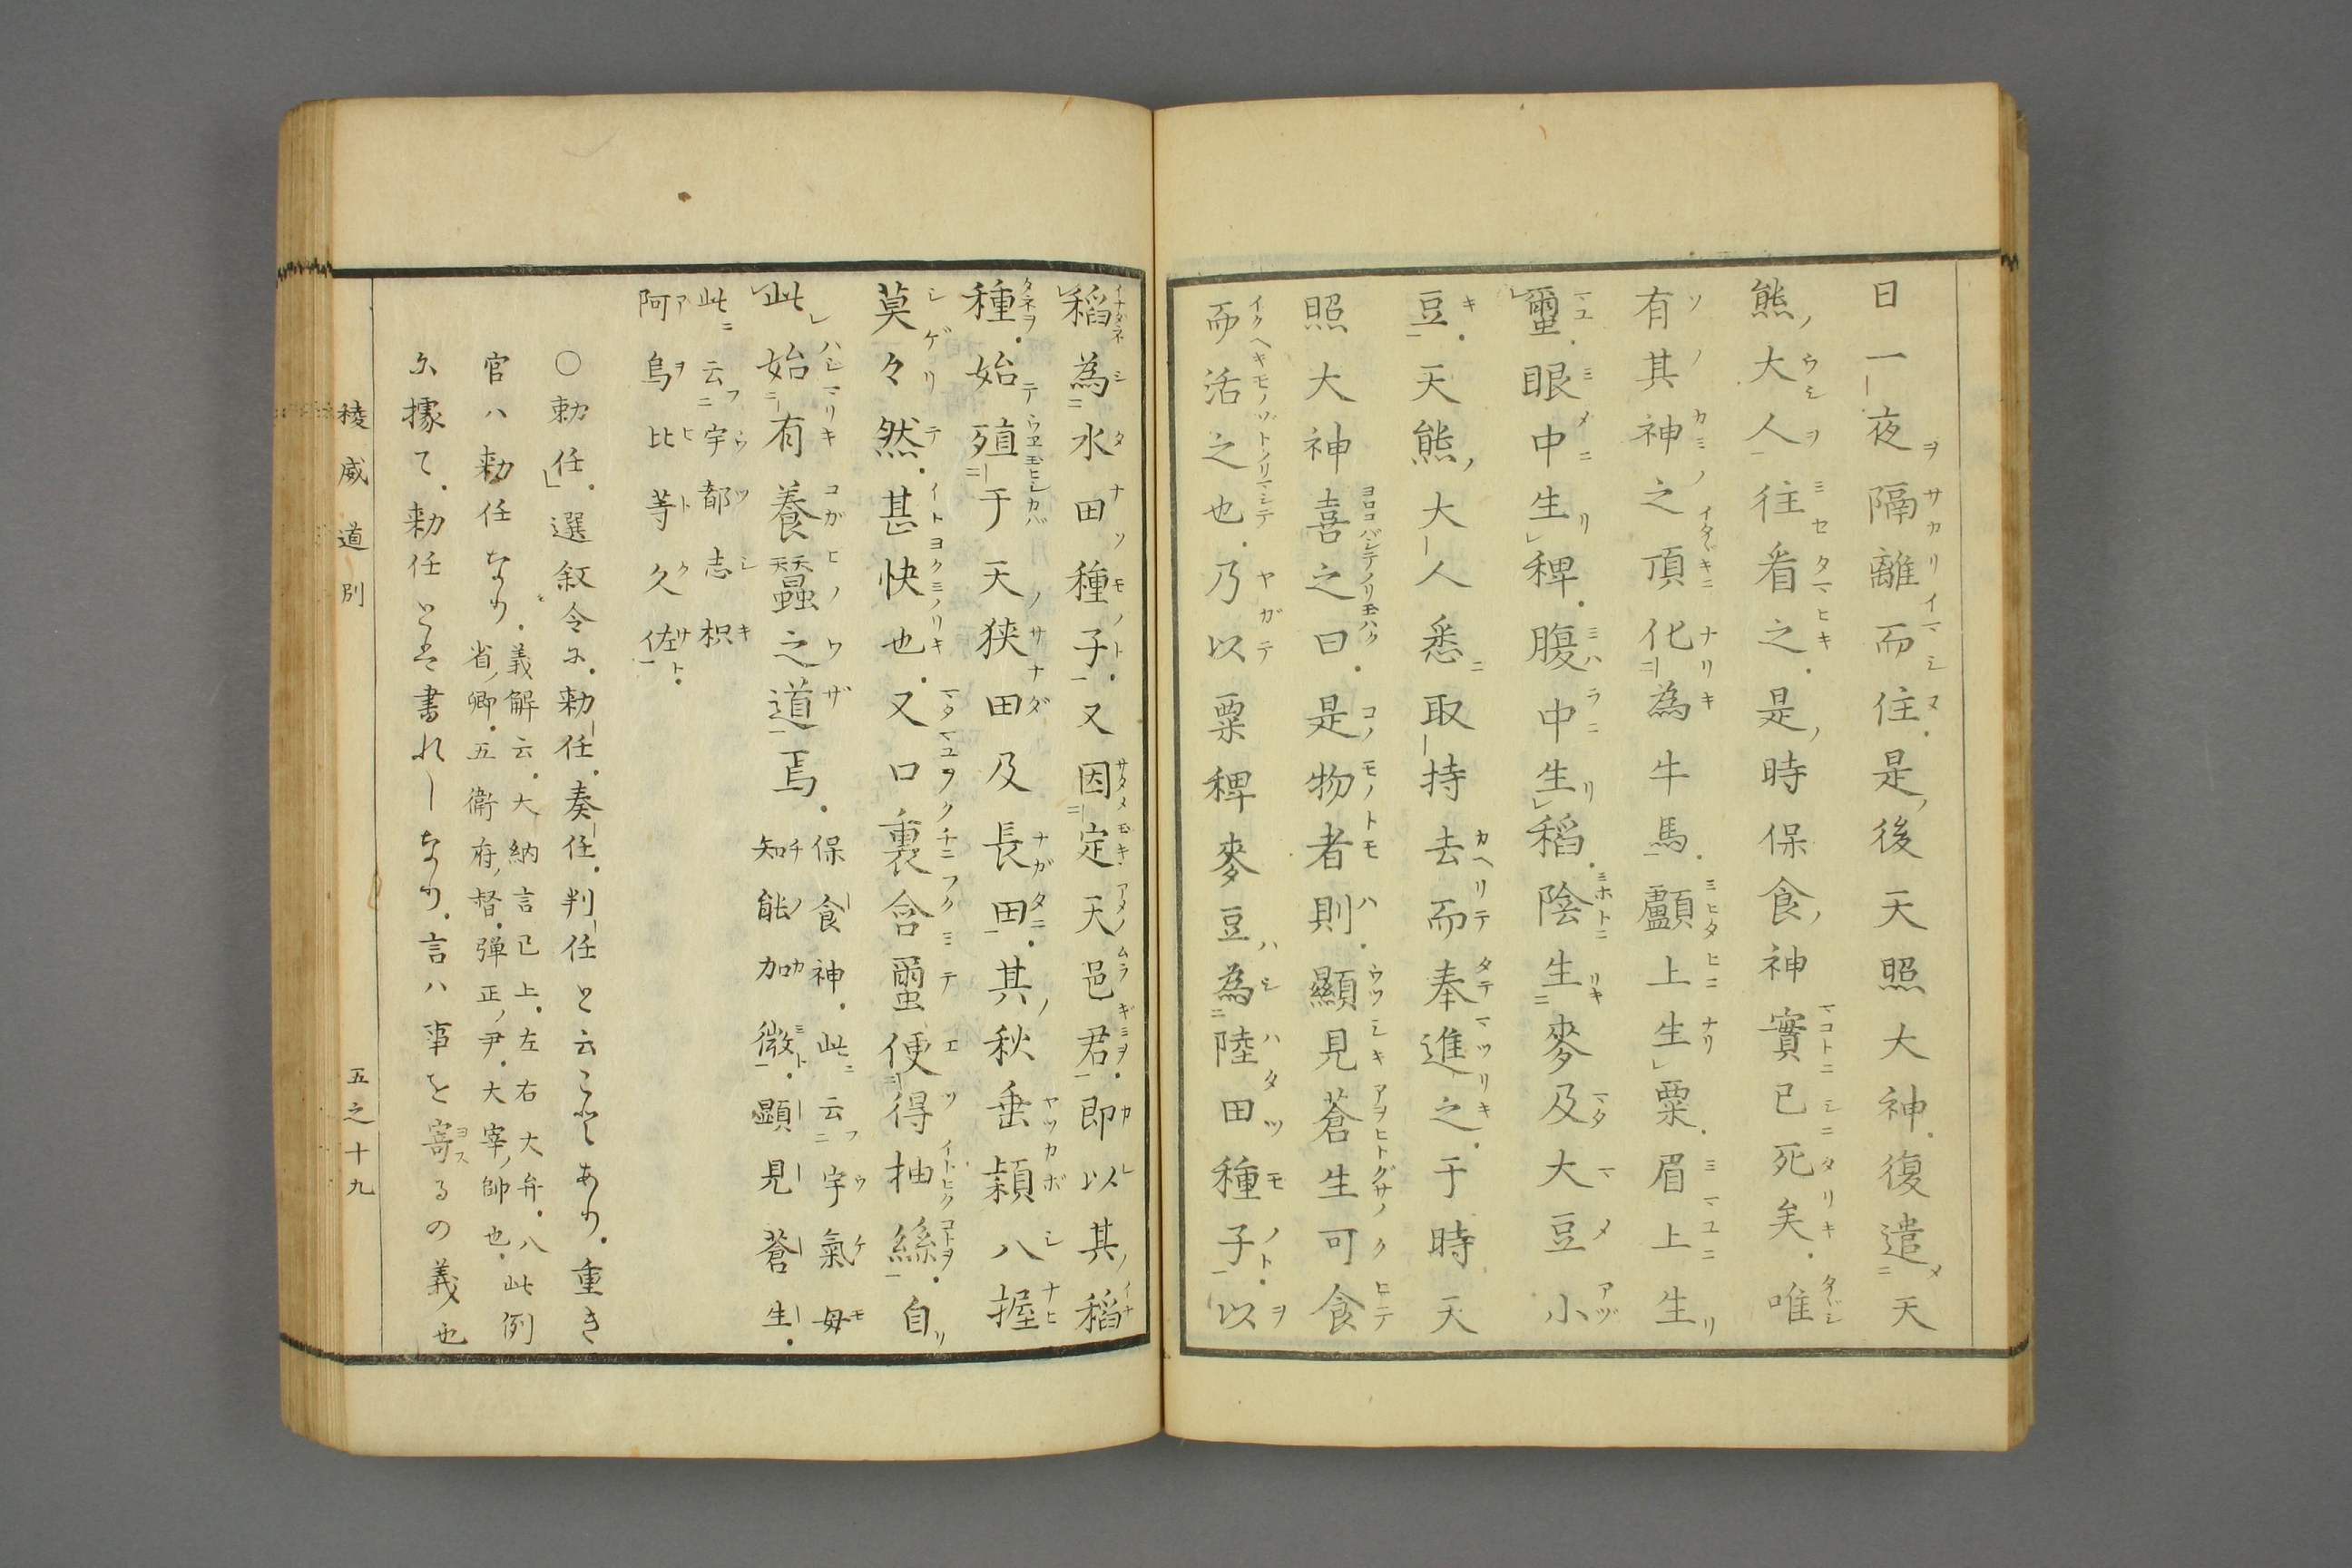 日一夜隔離而住是後天照大神復遣天
熊大人往看之是時保食神實已死矣唯
有其神之頂化為牛馬顱上生粟眉上生
蠒眼中生稗腹中生稻陰生麥及大豆小
豆天熊大人悉取持去而奉進之于時天
照大神喜之曰是物者則顯見蒼生可食
而活之也乃以粟稗麥豆為陸田種子以
稻為水田種子又因定天邑君即以其稻
種始殖于天狹田及長田其秋垂穎八握
莫々然甚快也又口裏含蠒便得抽絲自
此始有養蠶之道焉
保食神此云宇氣母
知能加微顯見蒼生
此云宇都志枳
阿烏比等久佐
○勅任選叙令ニ勅任奏任判任と云ことあり重き
官ハ勅任なり
義解云大納言已上左右大弁八
省卿五衛府督彈正尹大宰帥也此例
に據て勅任とは書れしなり言ハ事を寄るの義也
稜威道別
五之十九